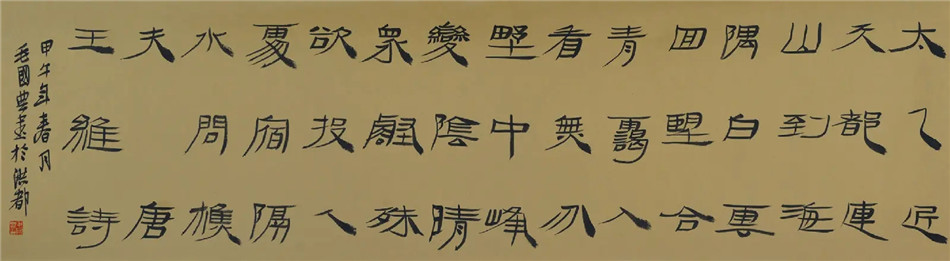 太乙近
天都連
山到海
隅白雲
回望合
青靄入
看無分
野中峰
變陰晴
眾壑殊
欲投人
處宿隔
水問樵
夫唐
王維詩
甲午年春月
毛國典書於洪都